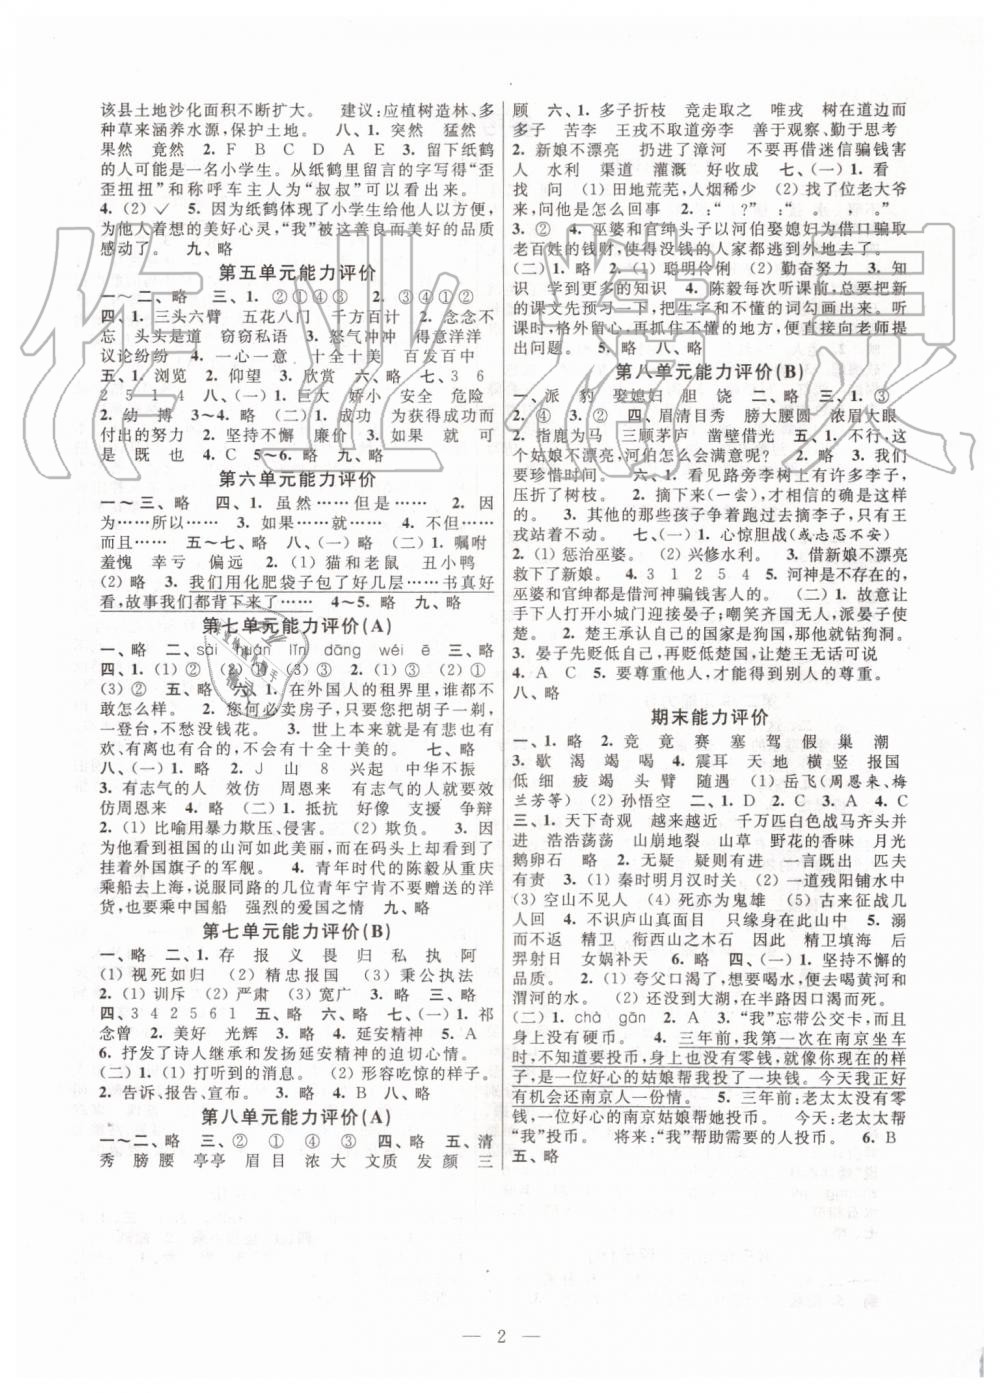 该县土地沙化面积不断扩大。 建议:应植树造林、多
种草来涵养水源,保护土地。 八、1. 突然 猛然
果然 竟然 2. F B C D A E 3. 留下纸鹤
的人可能是一名小学生。从纸鹤里留言的字写得“歪
歪扭扭”和称呼车主人为“叔叔”可以看出来。
4. (2) ✓ 5. 因为纸鹤体现了小学生给他人以方便、
为他人着想的美好心灵,“我”被这善良而美好的品质
感动了。 九、略
第五单元能力评价
一~二、略 三、1. ②①④③ 2. ③④①②
四、1. 三头六臂 五花八门 千方百计 2. 念念不
忘 头头是道 窃窃私语 3. 怒气冲冲 得意洋洋
议论纷纷 4. 一心一意 十全十美 百发百中
五、1. 浏览 2. 仰望 3. 欣赏 六、略 七、3 6
2 5 1 4 八、(一) 1. 巨大 娇小 安全 危险
2. 幼 搏 3~4. 略 (二) 1. 成功 为获得成功而
付出的努力 2. 坚持不懈 廉价 3. 如果 就 可
是 既 也 4. C 5~6. 略 九、略
第六单元能力评价
一~三、略 四、1. 虽然……但是…… 2. 因
为……所以…… 3. 如果……就…… 4. 不但……
而且…… 五~七、略 八、(一) 略 (二) 1. 嘱咐
羞愧 幸亏 偏远 2. (1) 猫和老鼠 丑小鸭
(2) 略 3. 我们用化肥袋子包了好几层……书真好
看,故事我们都背下来了…… 4~5. 略 九、略
第七单元能力评价(A)
一、略 二、sài luán lǐn dāng wéi ē 三、略
四、1. (1) ② (2) ① (3) ③ 2. (1) ③ (2) ①
(3) ② 五、略 六、1. 在外国人的租界里,谁都不
敢怎么样。 2. 您何必卖房子,只要您把胡子一剃,
一登台,不愁没钱花。 3. 世上本来就是有悲也有
欢、有离也有合的,不会有十全十美的。 七、略
八、(一) 1. 略 2. J 山 8 兴起 中华不振
3. 有志气的人 效仿 周恩来 有志气的人要效
仿周恩来 4. 略 (二) 1. 抵抗 好像 支援 争辩
2. (1) 比喻用暴力欺压、侵害。 (2) 欺负。 3. 因
为他看到祖国的山河如此美丽,而在码头上却到处
挂着外国旗子的军舰。 4. 青年时代的陈毅从重庆
乘船去上海,说服同路的几位青年宁肯不要赠送的洋
货,也要乘中国船 强烈的爱国之情 九、略
第七单元能力评价(B)
一、略 二、1. 存 报 义 畏 归 私 执 阿
(1) 视死如归 (2) 精忠报国 (3) 秉公执法
2. (1) 训斥 (2) 严肃 (3) 宽广 3. 略 三、略
四、3 4 2 5 6 1 五、略 六、略 七、(一) 1. 祁
念曾 2. 美好 光辉 3. 略 4. 延安精神 5. A
6. 抒发了诗人继承和发扬延安精神的迫切心情。
(二) 1. (1) 打听到的消息。 (2) 形容吃惊的样子。
2. 告诉、报告、宣布。 3. 略 4. 略 八、略
第八单元能力评价(A)
一~二、略 三、② ① ④ ③ 四、略 五、清
秀 膀腰 亭亭 眉目 浓 大 文质 发 颜 三
顾 六、1. 多子折枝 竞走取之 唯戎 树在道边而
多子 苦李 王戎不动道旁李 善于观察、勤于思考
2. 新娘不漂亮 扔进了漳河 不要再借迷信骗钱害
人 水利 渠道 灌溉 好收成 七、(一) 1. 看
找 问 (1) 田地荒芜,人烟稀少 (2) 找了位老大爷
来,问他是怎么回事 2. :“ ?” :“ , 。 , 。”
3. ② ④ 4. 巫婆和官绅头子以河伯娶媳妇为借口骗取
老百姓的钱财,使得没钱的人家都逃到外地去了。
(二) 1. 略 2. (1) 聪明伶俐 (2) 勤奋努力 3. 知
识 学到更多的知识 4. 陈毅每次听课前,总要把新
的课文先预习一下,把生字和不懂的词勾画出来。听
课时,格外留心,再抓住不懂的地方,直接向老师提
出问题。 5. 略 八、略
第八单元能力评价(B)
一、派 豹 娶媳妇 胆 饶 二、略 三、1. ③
2. ④ 3. ② 四、眉清目秀 膀大腰圆 浓眉大眼
2. 指鹿为马 三顾茅庐 凿壁借光 五、1. 不行,这
个姑娘不漂亮,河伯怎么会满意呢? 2. 略 3. 我们
要珍惜时间。 六、1. 看见路旁李树上有许多李子,
压折了树枝。 2. 摘下来(一尝),才确信是这样
的。 3. 其他的那些孩子争着跑过去摘李子,只有王
戎站着不动。 七、(一) 1. 心惊胆战(或忐忑不安)
2. (1) 惩治巫婆。 (2) 兴修水利。 3. 借新娘不漂亮
救下了新娘。 4. 3 1 2 5 4 5. 河神是不存在的,
巫婆和官绅都是借河神骗钱害人的。 (二) 1. 故意让
手下人打开小城门迎接晏子;嘲笑齐国无人,派晏子
出使。 2. 楚王承认自己的国家是狗国,那他就钻狗洞。
3. 晏子先贬低自己,再贬低楚国,让楚王无话可说。
4. A C 5. 要尊重他人,才能得到别人的尊重。
八、略
期末能力评价
一、1. 略 2. 竞 竟 赛 塞 驾 假 巢 潮
3. 歇 渴 竭 喝 4. 震耳 天地 横竖 报国
低 细 疲 竭 头 臂 随遇 (1) 岳飞(周恩来、梅
兰芳等) (2) 孙悟空 二、1. D 2. C 3. A 4. C
三、1. 天下奇观 越来越近 千万匹白色战马齐头并
进 浩浩荡荡 山崩地裂 山草 野花的香味 月光
鹅卵石 略 2. 无疑 疑则有进 一言既出 匹夫
有责 3. (1) 秦时明月汉时关 (2) 一道残阳铺水中
(3) 空山不见人 (4) 死亦为鬼雄 (5) 古来征战几
人回 4. 不识庐山真面目 只缘身在此山中 5. 溺
而不返 精卫 衔西山之木石 因此 精卫填海 后
羿射日 女娲补天 6. 略 四、(一) 1. 坚持不懈的
品质。 2. (1) 夸父口渴了,想要喝水,便去喝黄河和
渭河的水。 (2) 还没到大湖,在半路因口渴而死。
(二) 1. chà gān 2. A 3. “我”忘带公交卡,而且
身上没有硬币。 4. 三年前,我第一次在南京坐车
时,不知道要投币,身上也没有零钱,就像你现在的样
子,是一位好心的姑娘帮我投了一块钱。今天我正好
有机会还南京人一份情。 5. 三年前:老太太没有
零钱,一位好心的南京姑娘帮她投币。 今天:老太太帮
“我”投币。 将来:“我”帮助需要的人投币。 6. B
五、略
— 2 —